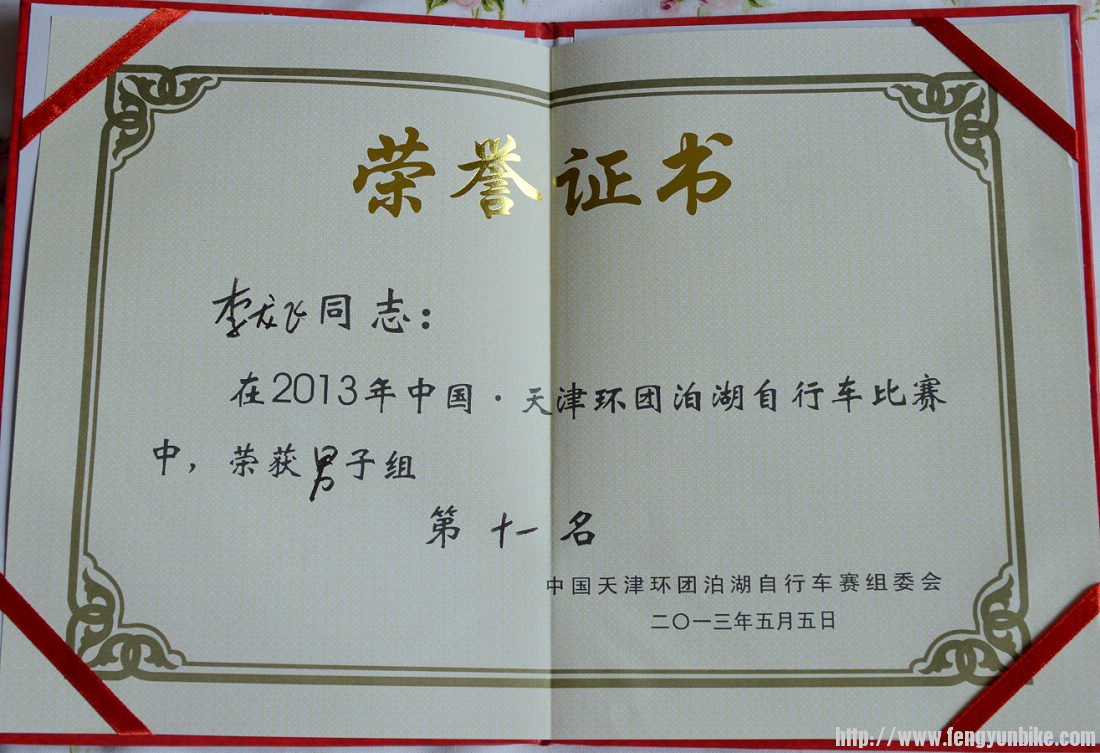 荣誉证书
李龙飞同志：
在2013年中国·天津环团泊湖自行车比赛
中，荣获男子组
第十一名
中国天津环团泊湖自行车赛组委会
二〇一三年五月五日
http://www.fengyunbike.com